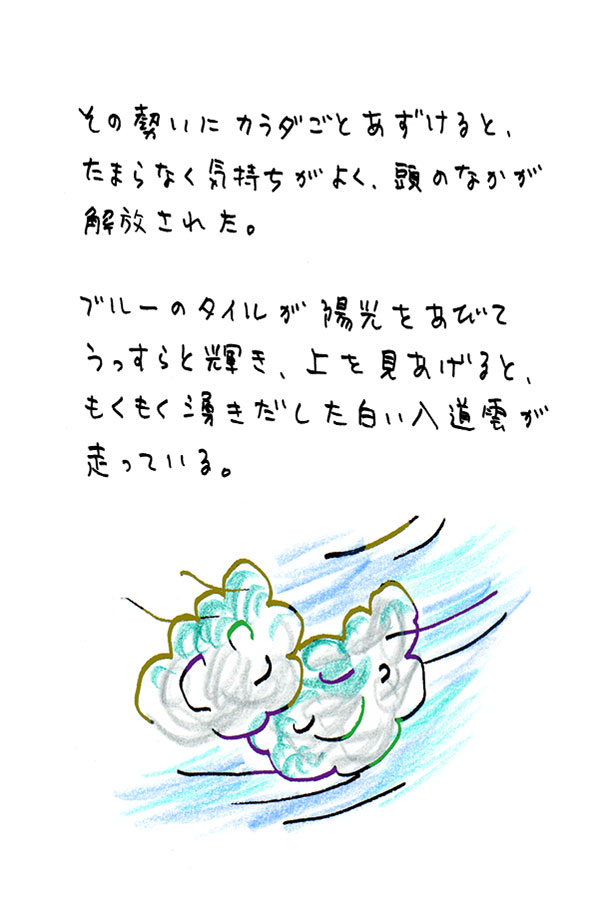 その勢いにカラダごとあずけると、
たまらなく気持ちがよく、頭のなかが
解放された。
ブルーのタイルが陽光をあびて
うっすらと輝き、上を見あげると、
もくもく湧きだした白い入道雲が
走っている。